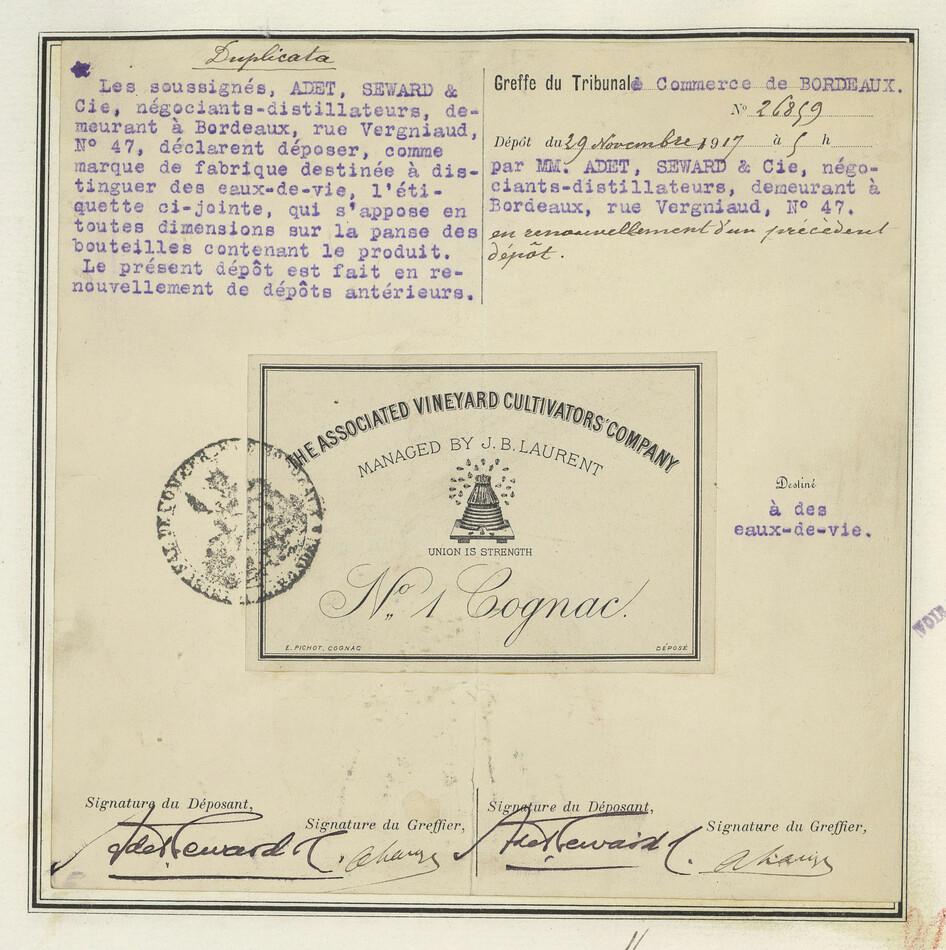 Duplicata
Les soussignés, ADET, SEWARD &
Cie, négociants-distillateurs, de-
meurant à Bordeaux, rue Vergniaud,
N° 47, déclarent déposer, comme
marque de fabrique destinée à dis-
tinguer des eaux-de-vie, l'éti-
quette ci-jointe, qui s'appose en
toutes dimensions sur la panse des
bouteilles contenant le produit.
Le présent dépôt est fait en re-
nouvellement de dépôts antérieurs.
Greffe du Tribunal de Commerce de BORDEAUX.
N° 26859
Dépôt du 29 Novembre 1917 à 5 h
par MM. ADET, SEWARD & Cie, négo-
ciants-distillateurs, demeurant à
Bordeaux, rue Vergniaud, N° 47.
en renouvellement d'un précédent
dépôt.
THE ASSOCIATED VINEYARD CULTIVATORS' COMPANY
MANAGED BY J.B. LAURENT
UNION IS STRENGTH
No 1 Cognac.
E. PICHOT, COGNAC
DÉPOSÉ
Destiné
à des
eaux-de-vie.
VOIR
Signature du Déposant,
Signature du Greffier,
Adet Seward
Signature du Déposant,
Signature du Greffier,
Adet Seward